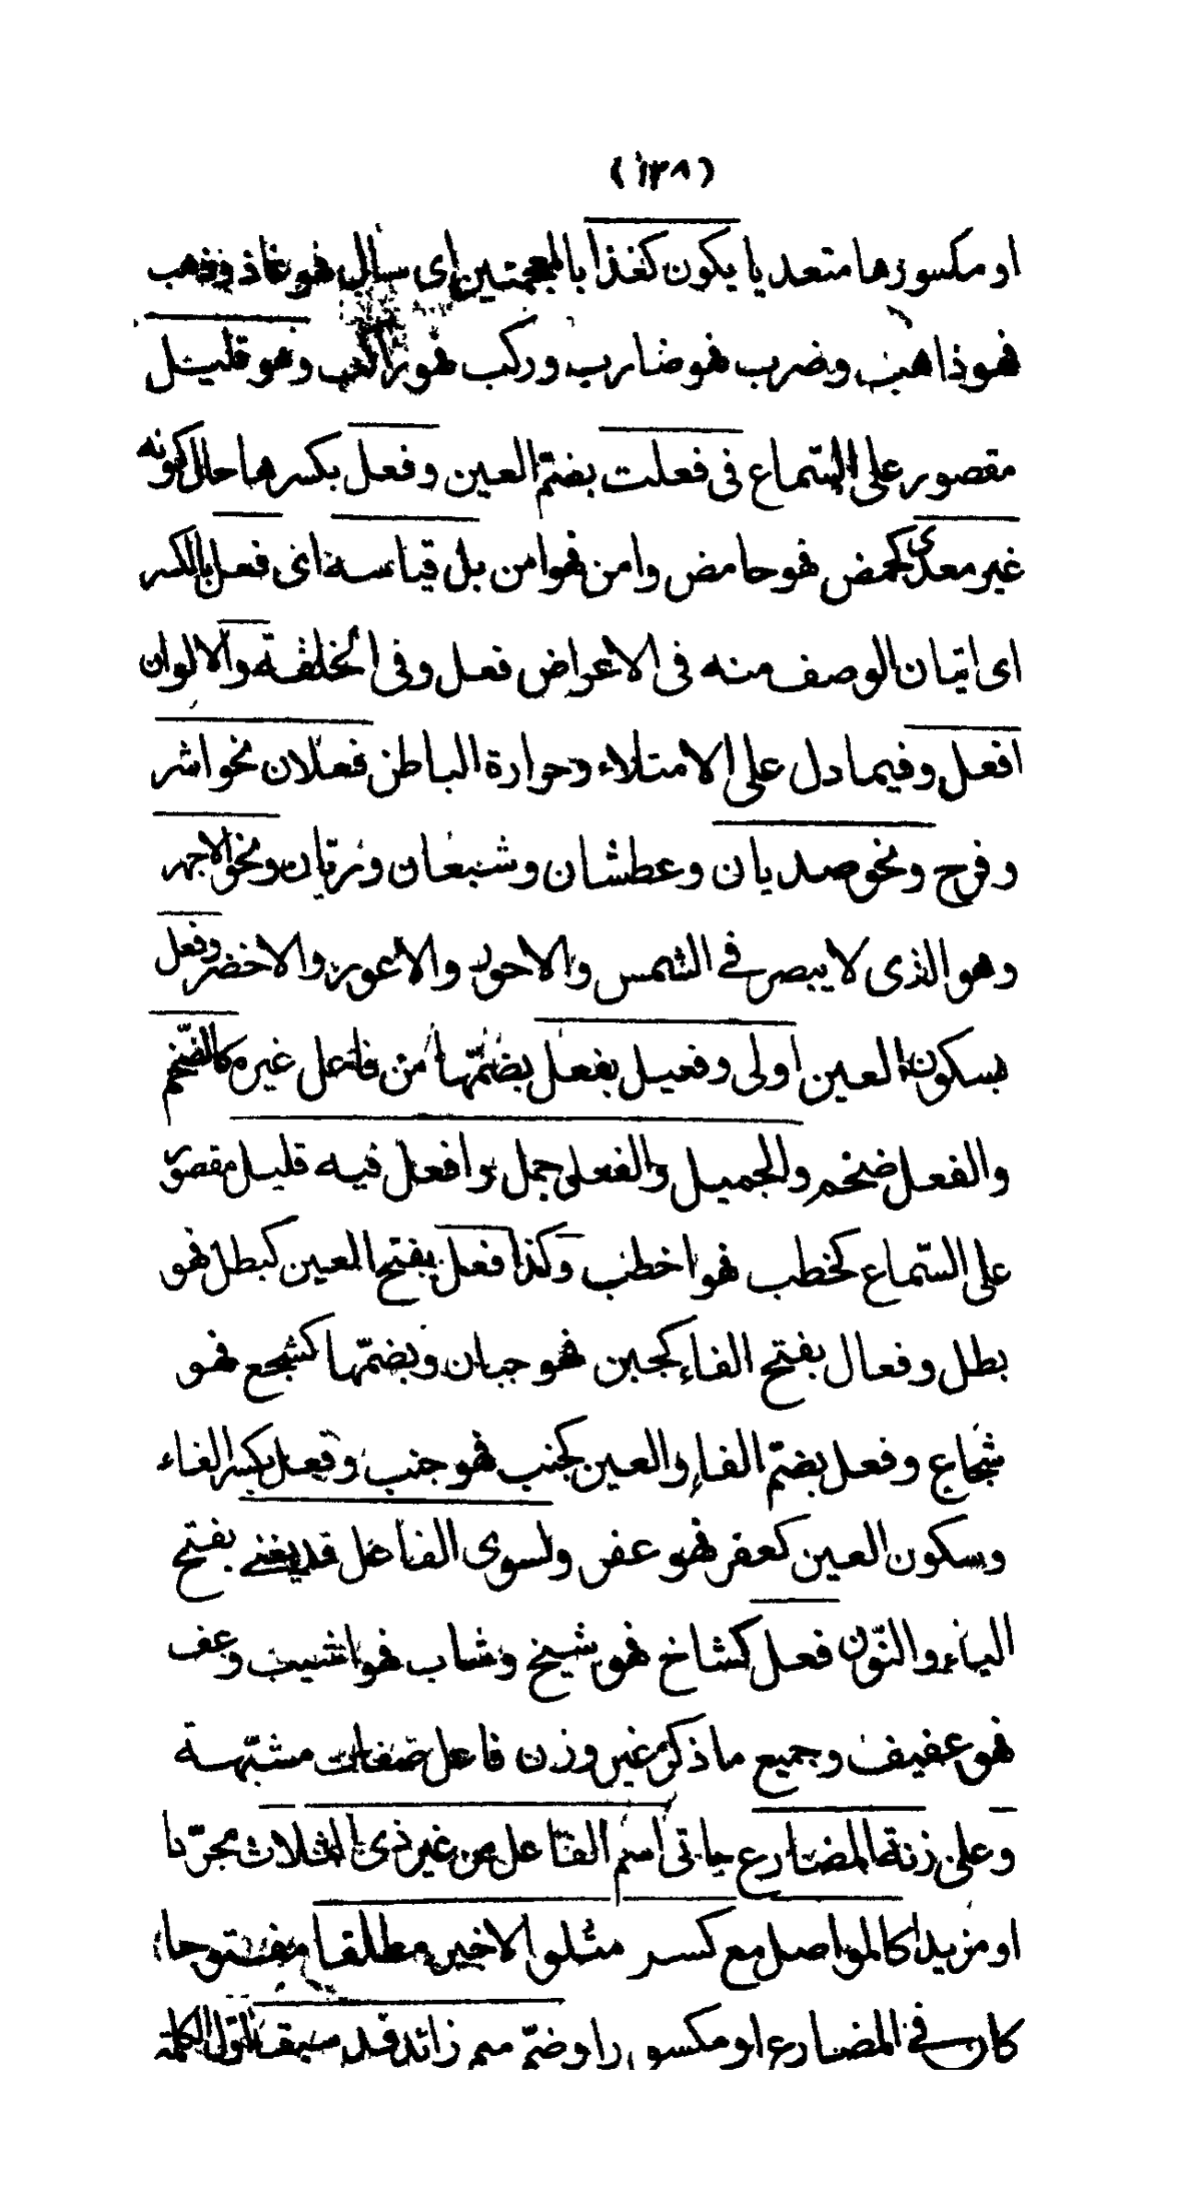 (١٣٨)
او مكسورها متعديا يكون كغذا بالمعجمتين اى سال فهو غاذ وذهب
فهو ذاهب وضرب فهو ضارب وركب فهو راكب وهو قليل
مقصور على السّماع فى فعلت بضمّ العين وفعل بكسرها حال كونه
غير معدى كحمض فهو حامض وامن فهو امن بل قياسه اى فعل بالكسر
اى اتيان الوصف منه فى الاعراض فعل وفى الخلقة والالوان
افعل وفيما دل على الامتلاء وحرارة الباطن فعلان نحو اشر
وفرح ونحو صديان وعطشان وشبعان وريّان ونحو الاجهر
وهو الذى لا يبصر فى الشمس والاحول والاعور والاخضر وفعل
بسكون العين اولى وفعيل بفعل بضمّها من فاعل غيره كالضّخم
والفعل ضخم والجميل والفعل جمل وافعل فيه قليل مقصور
على السّماع كخطب فهو اخطب وكذا فعل بفتح العين كبطل فهو
بطل وفعال بفتح الفاء كجبن فهو جبان وبضمّها كشجع فهو
شجاع وفعل بضمّ الفاء والعين كجنب فهو جنب وفعل بكسر الفاء
وسكون العين كعفر فهو عفر ولسوى الفاعل قد يغنى بفتح
الياء والنّون فعل كشاخ فهو شيخ وشاب فهو اشيب وعف
فهو عفيف وجميع ما ذكر غير وزن فاعل صفات مشبّهة
وعلى زنة المضارع جا تى اسم الفاعل من غير ذى الثلاث مجرّدا
او مزيدا كالمواصل مع كسر متلو الاخير مطلقا مفتوحا
كان فى المضارع او مكسورا وضمّ ميم زائد قد سبقا اول الكلمة